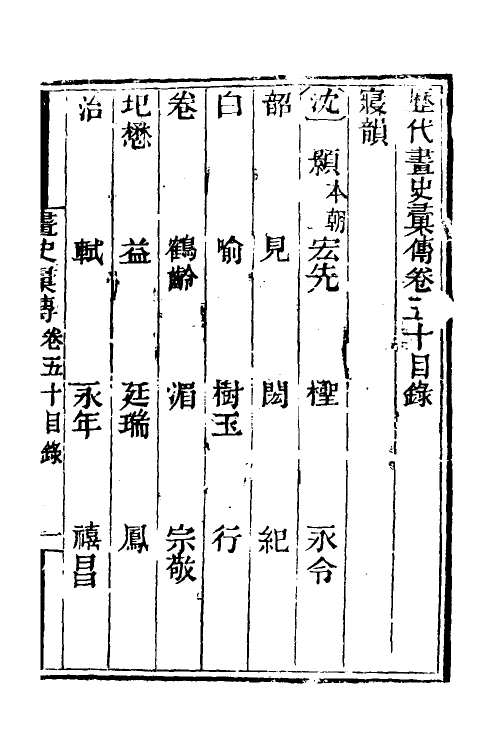 歷代畫史彙傳卷五十目錄
寢韻
沈 顥本朝 宏先 檉 永令
韶 見 閎 紀
白 喻 樹玉 行
卷 鶴齡 湄 宗敬
圯懋 益 廷瑞 鳳
治 軾 永年 禧昌
畫史彙傳 卷五十目錄 一